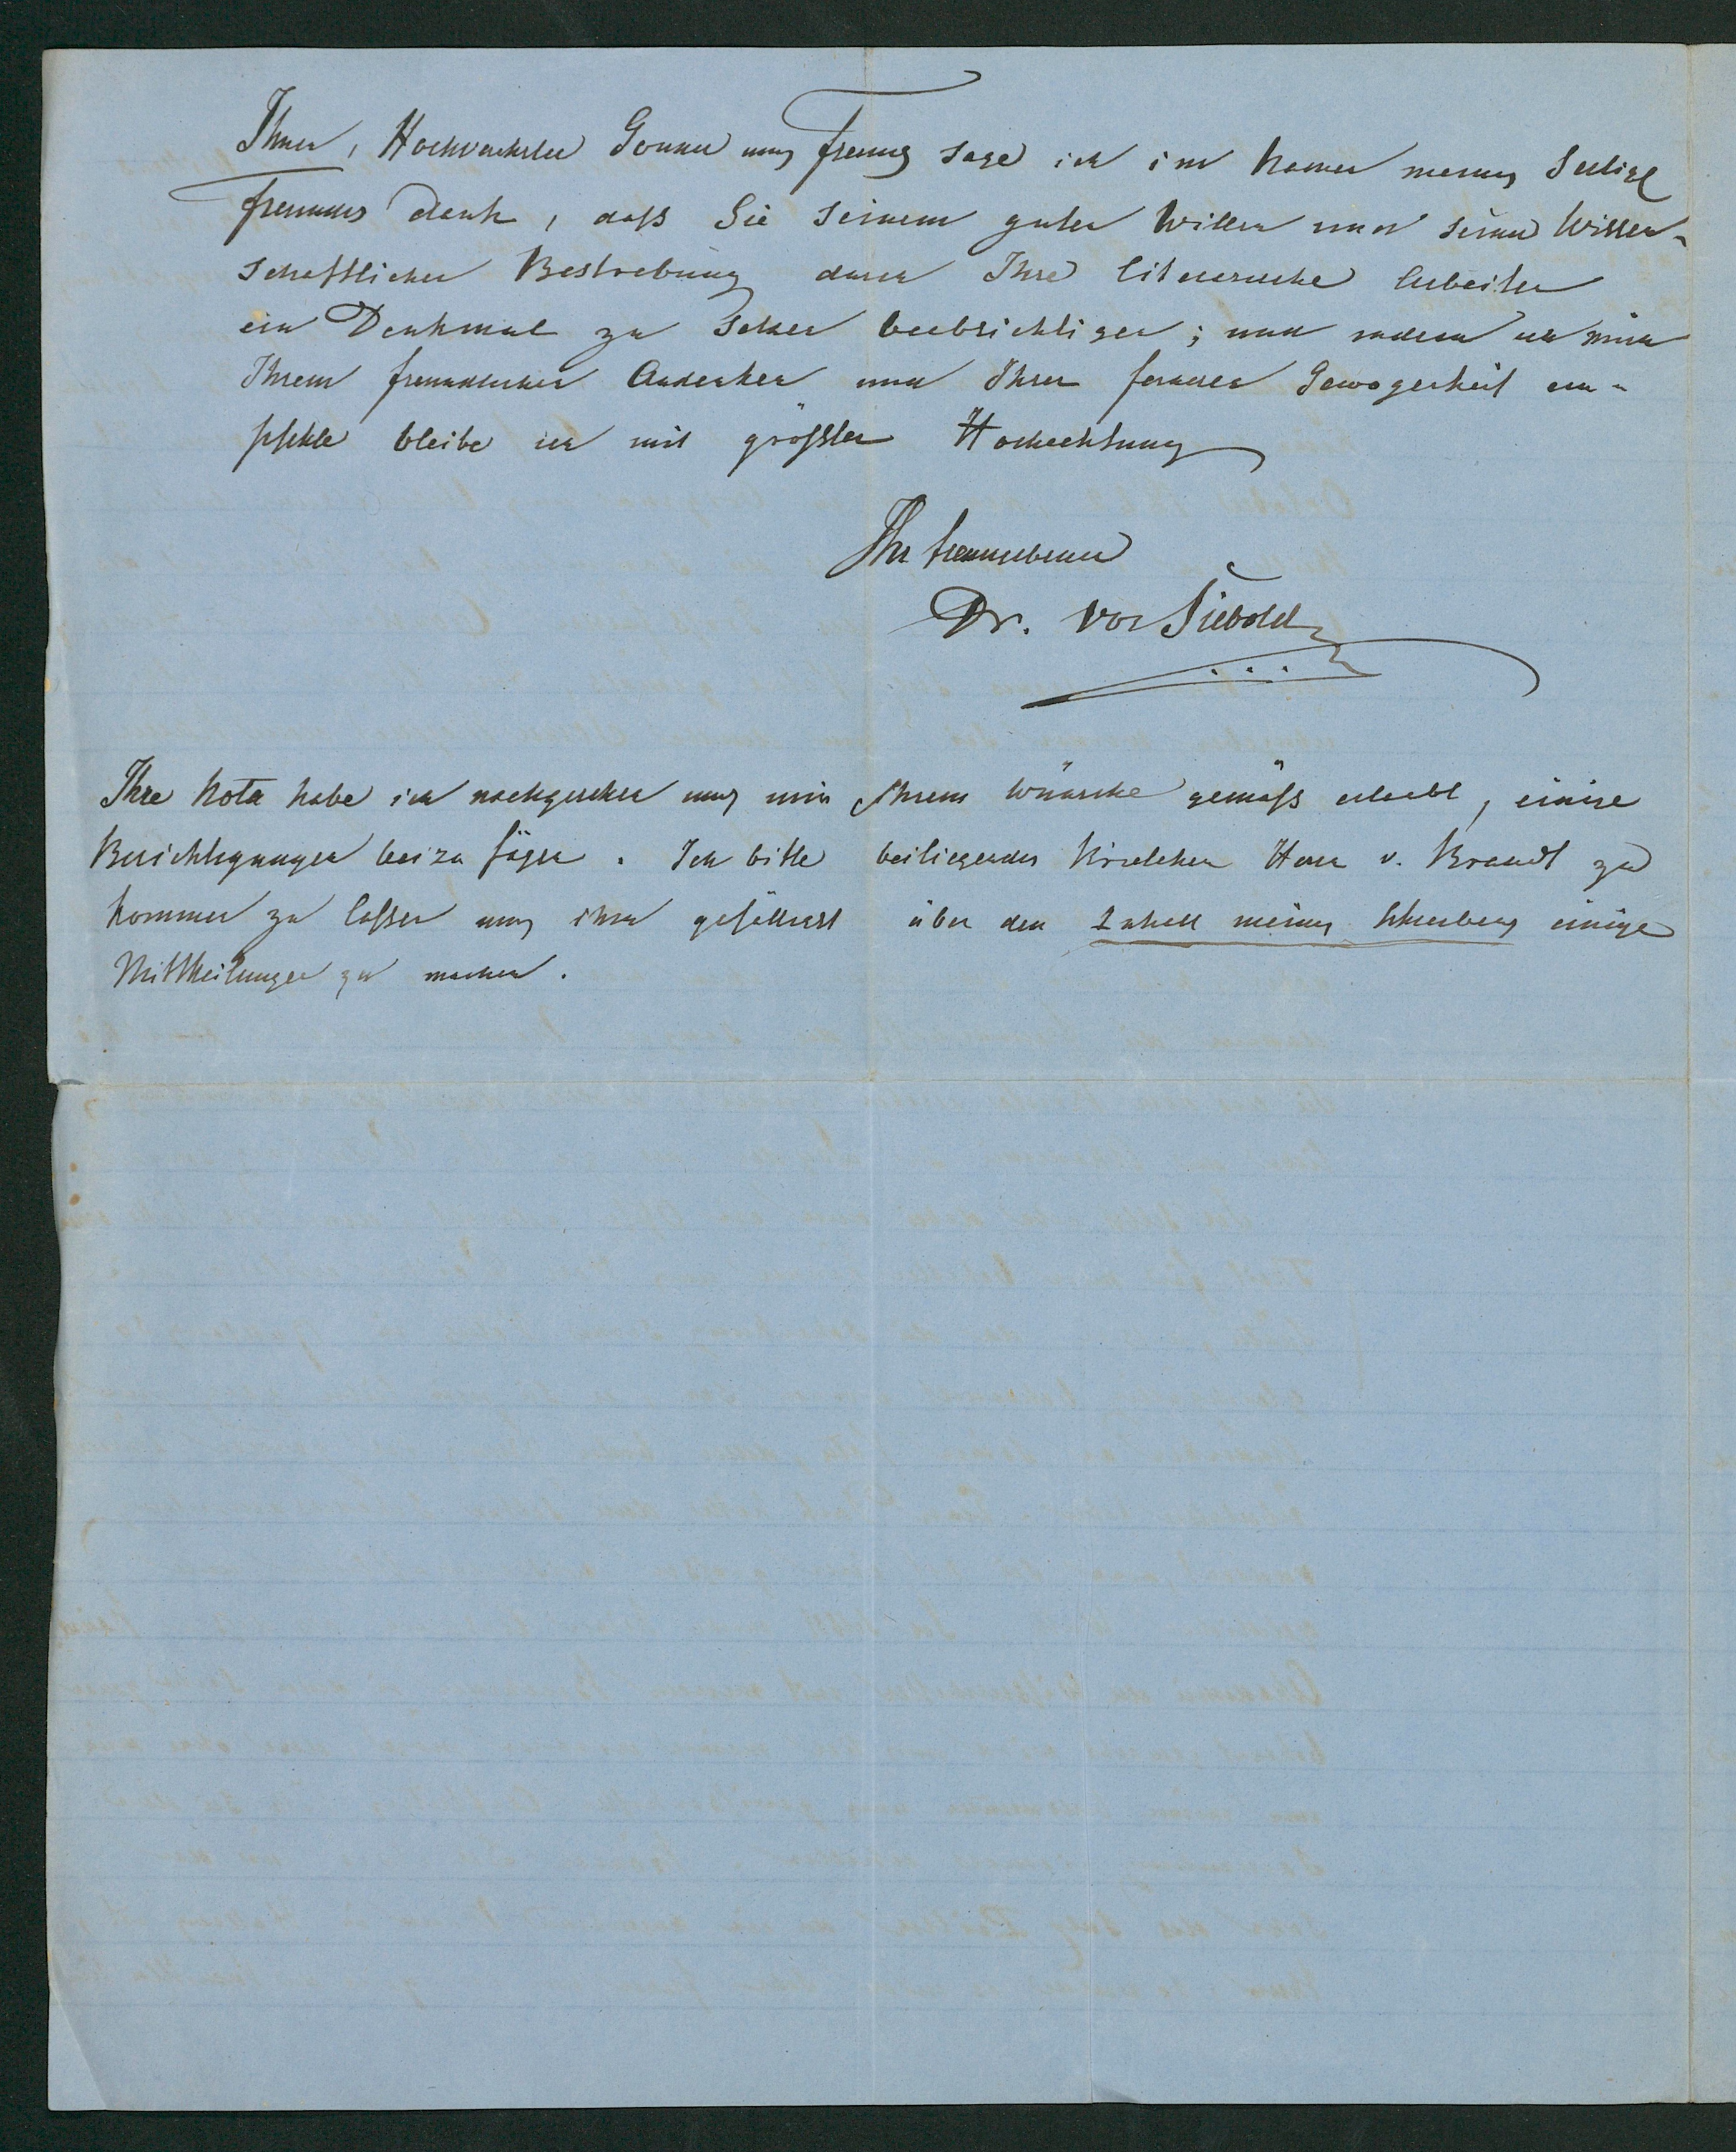 Ihnen, Hochverehrter Gönner und Freund sage ich im Namen meines Seelige
Freundes Dank, daß Sie seinem guten Willen und seinen Wissen-
schaftlichen Bestrebung durch Ihre literarische Arbeiten
ein Denkmal zu setzen beabsichtigen; und indem ich mich
Ihrem freundlichen Andenken und Ihrer fernern Gewogenheit em-
pfehle bleibe ich mit größter Hochachtung
Ihr
Dr. von Siebold
Ihre Nota habe ich nachgesehen und mir Ihrem Wünsche gemäß erlaubt, einige
Berichtigungen beizufügen. Ich bitte beiliegendes Briefchen Herrn v. Brandt zu
kommen zu laßen und ihm gefälligst über den Inhalt meines Schreibens einige
Mittheilungen zu machen.